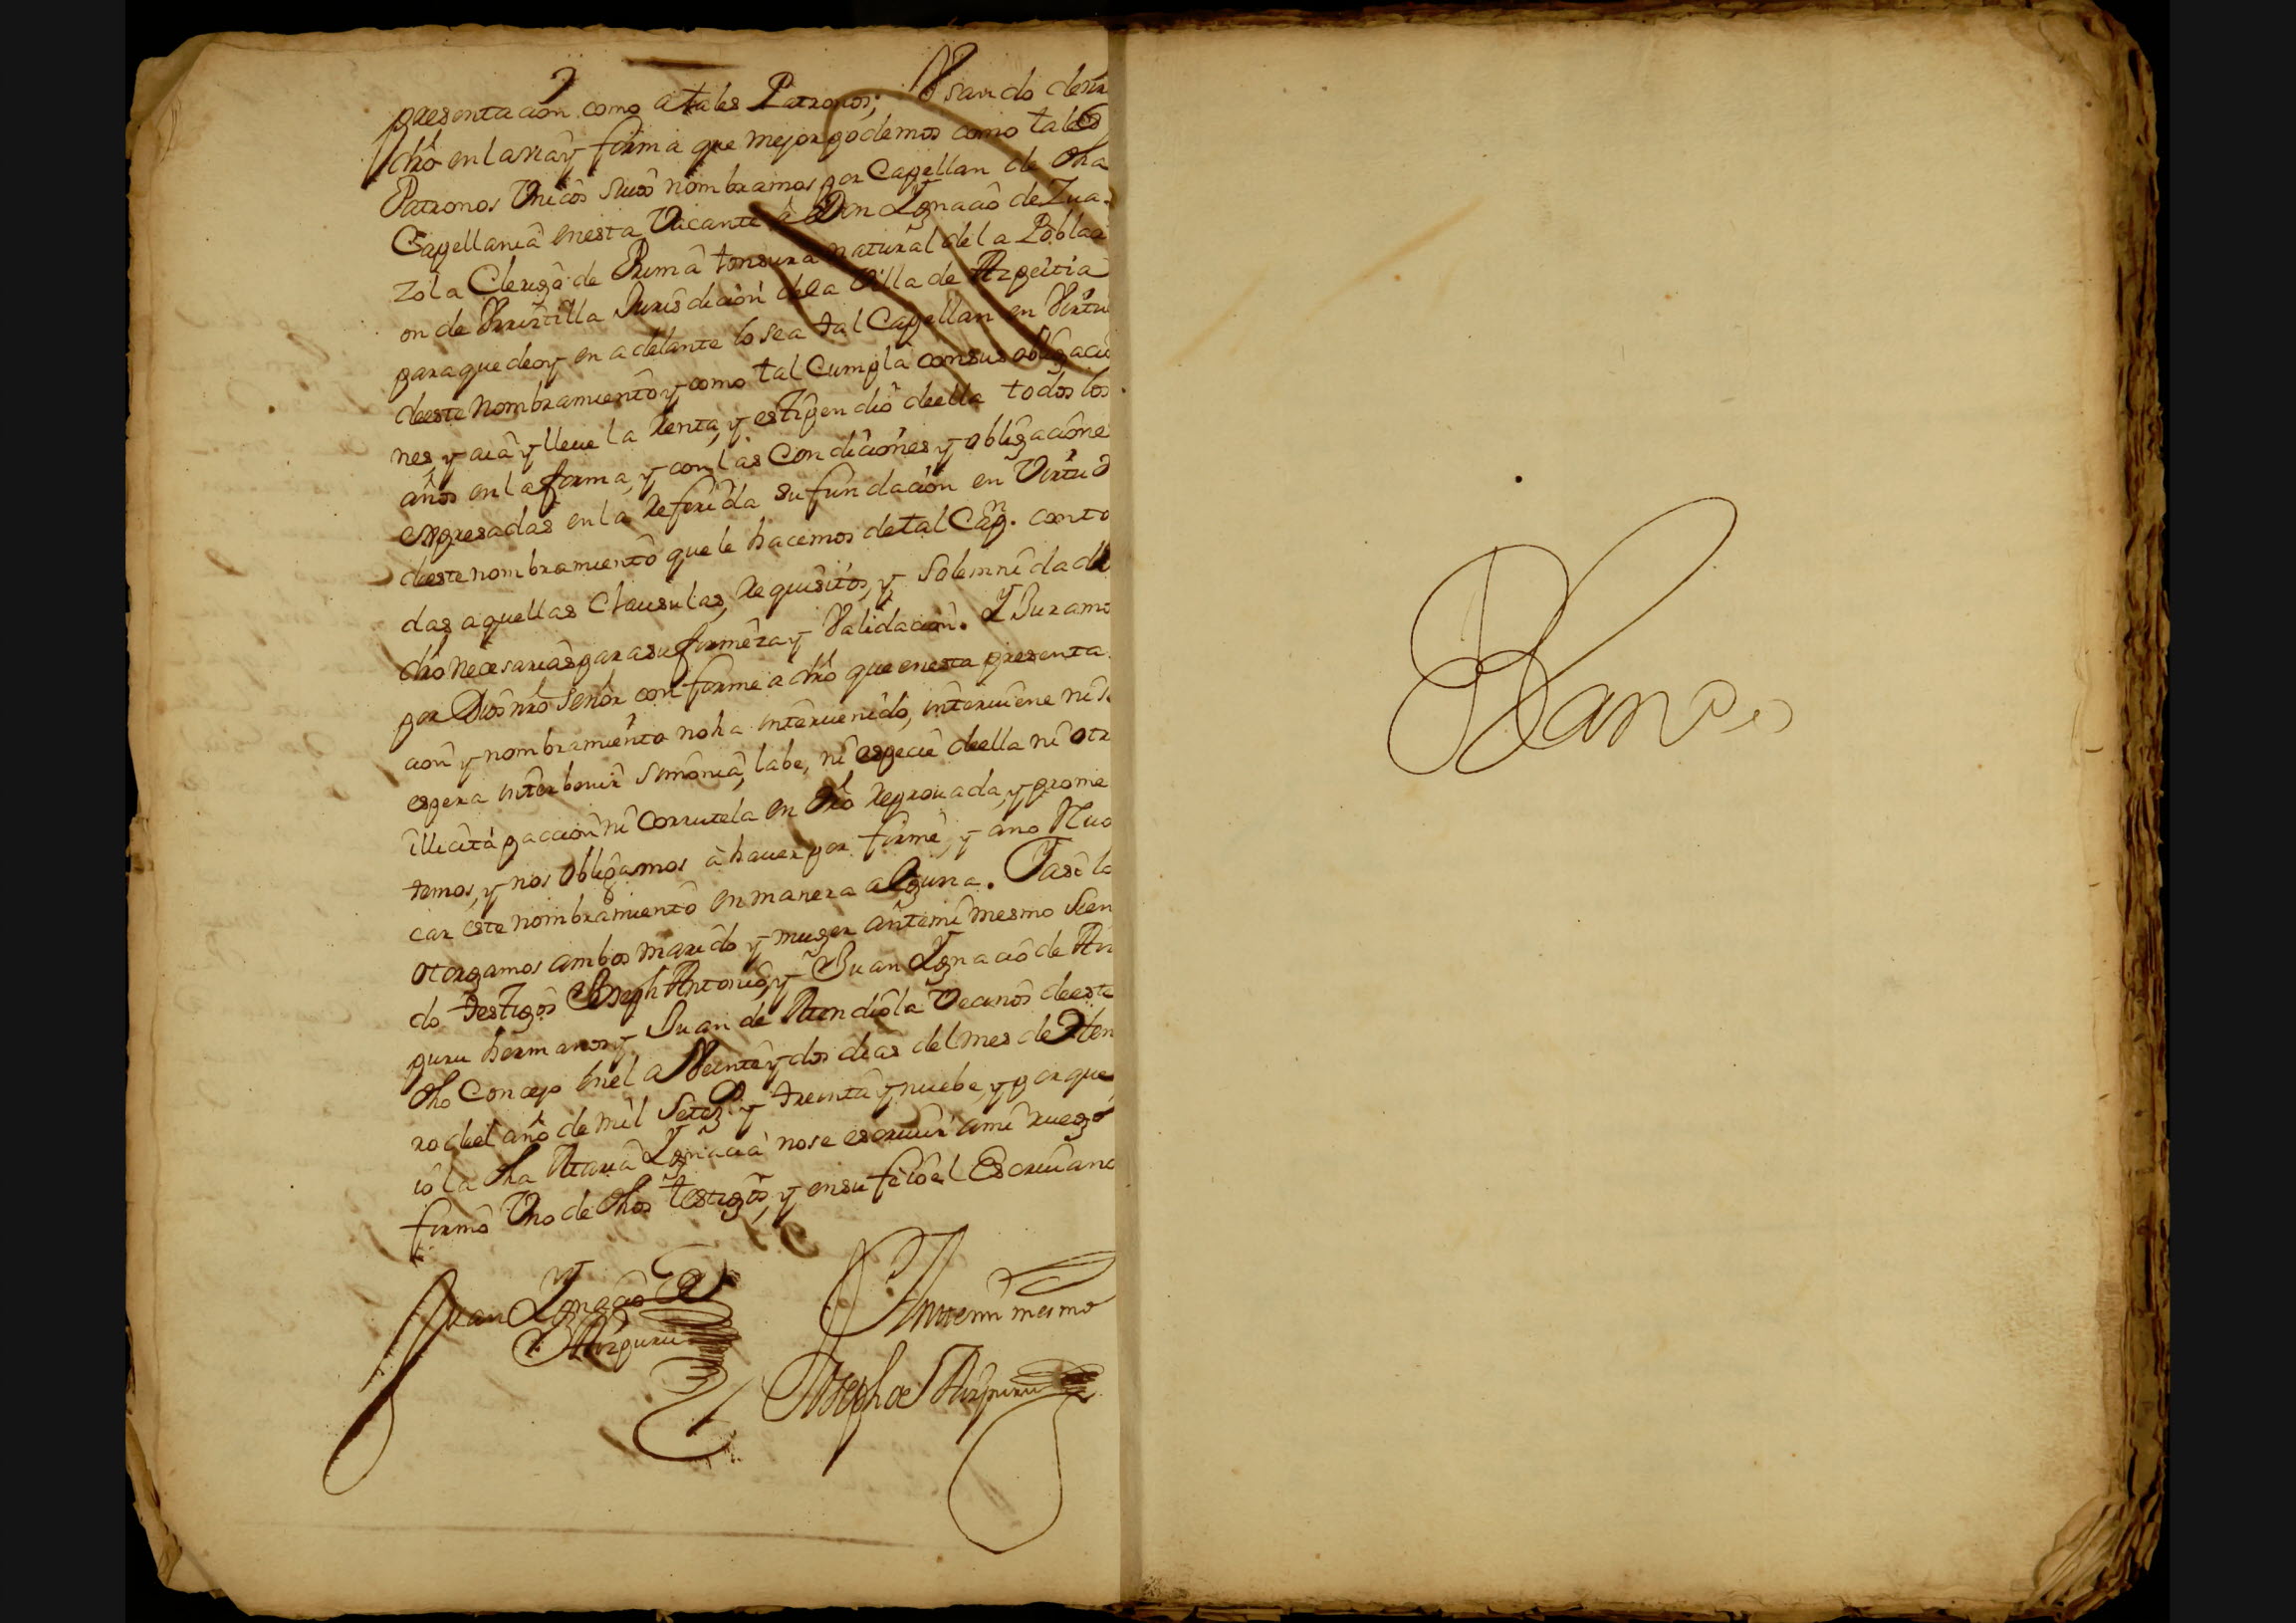 presentacion como a tales Patronos; Usando de nr̃o
dr̃ho en la via y forma que mejor podemos como tales
Patronos Vnicos suios nombramos por Capellan de dha
Capellania en esta Vacante à Don Ygnacio de Zua-
zola Clerigo de Prima tonsura natural de la Poblaci
on de Vrrestilla Jurisdicion de la Villa de Azpeitia
para que de oy en adelante lo sea tal Capellan en Virtu
de este nombramiento y como tal Cumpla con sus obligacio
nes, y aia y lleue la Renta, y estipendio de ella todos los
años en la forma, y con las Condiciones y obligacione
expresadas en la Referida su fundacion en Virtud
de este nombramiento que le hacemos de tal Capn. con to
das aquellas Clausulas, Requisitos, y Solemnidad de
dr̃ho necesarias para su firmeza y Validacion. Y Juramo
por Dios nr̃o Señor conforme a dr̃ho que en esta presenta
cion y nombramiento no ha interuenido, interuiene ni se
espera interbenir Simonia, labe, ni especie de ella ni otr
illicita paccion ni Corrutela en dr̃ho Reprouada, y prome
temos, y nos obligamos à hauer por firme, y a no Reuo
car este nombramiento en manera alguna. Y asi lo
otorgamos ambos marido y muger ante mi mesmo sien
do testigos Joseph Antonio, y Juan Ygnacio de Aiz
puru hermanos y Juan de Mendiola Vecinos de este
dho Concejo en el a Veinte y dos dias del mes de Hen
ro del año de mil Setez.s y treinta y nuebe, y porque
io la dha Maria Ygnacia no se escriuir a mi ruego
firmo Vno de dhos testigos, y en su fe io el Escriuano
Juan Ygnacio de
Aizpuru
Ante mi mesmo
Joseph de Aizpuru
Blanco